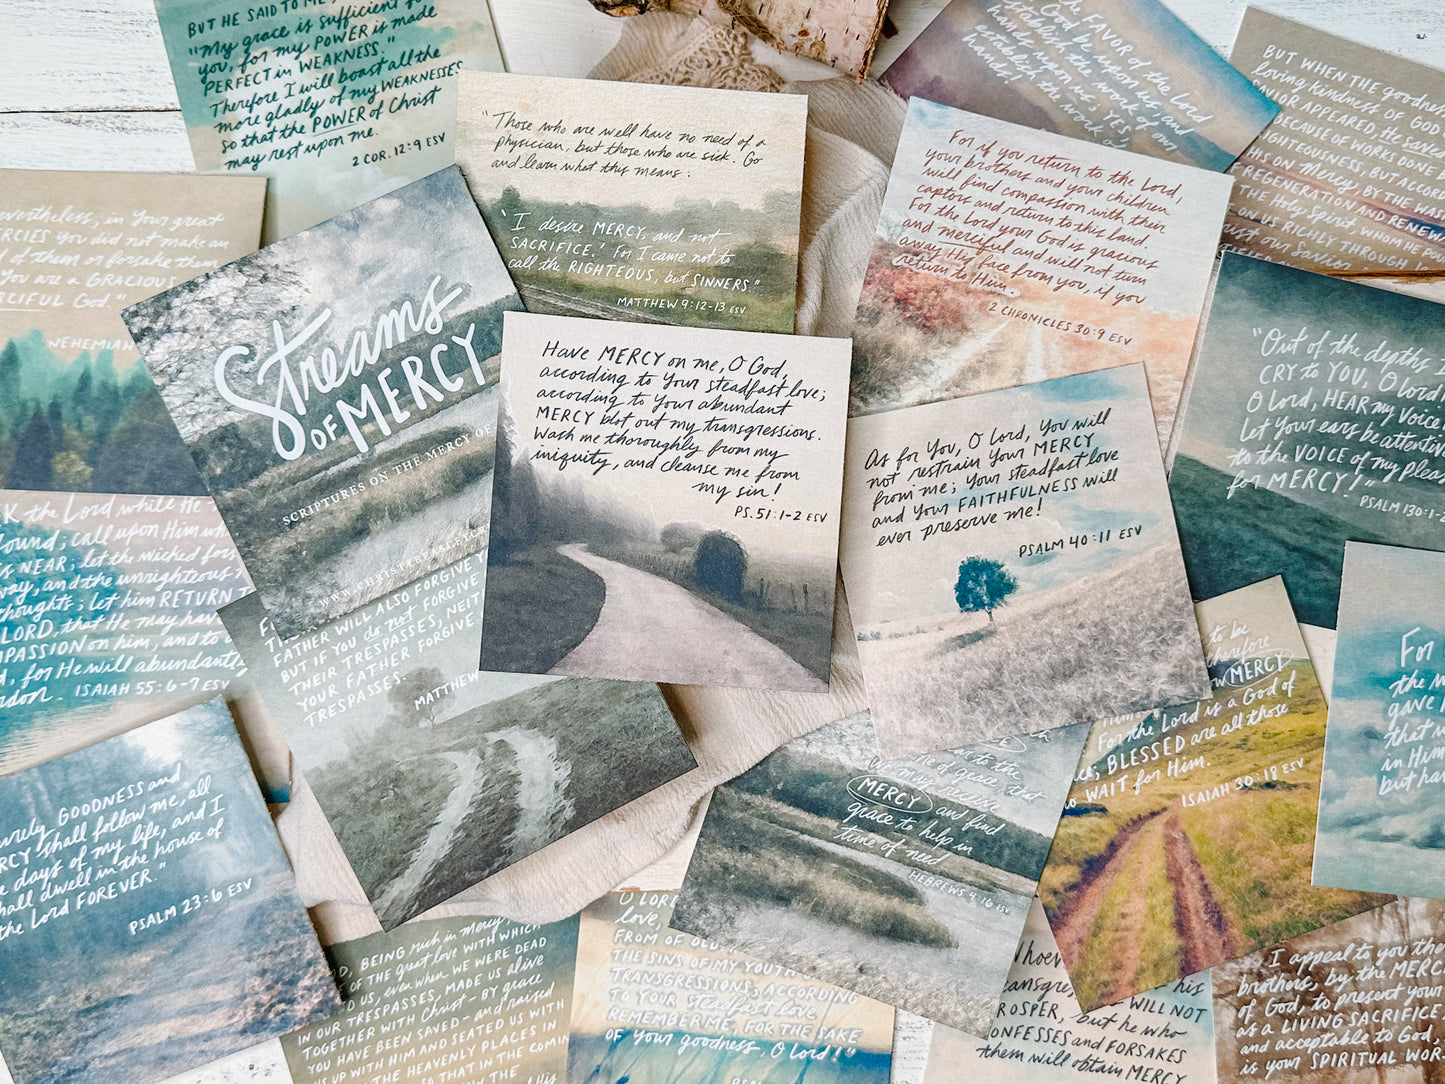 BUT HE SAID TO ME,
"My grace is sufficient for
you, for my POWER is made
PERFECT in WEAKNESS."
Therefore I will boast all the
more gladly of my WEAKNESSES
so that the POWER of Christ
may rest upon me.
2 COR. 12:9 ESV
"Those who are well have no need of a
physician, but those who are sick. Go
and learn what this means:
'I desire MERCY, and not
SACRIFICE.' For I came not to
call the RIGHTEOUS, but SINNERS"
MATTHEW 9:12-13 ESV
FAVOR of the Lord
God be upon us, and
establish the work of our
hands upon us; YES,
establish the work
hands!
For if you return to the Lord,
your brothers and your children
will find compassion with their
captors and return to this land.
For the Lord your God is gracious
and merciful and will not turn
away His face from you, if you
return to Him.
2 CHRONICLES 30:9 ESV
BUT WHEN THE goodness
loving kindness OF GOD
APPEARED, He saved
BECAUSE OF WORKS DONE
BUT ACCORD
HIS OWN Mercy, BY THE WAS
REGENERATION AND RENEW
THE Holy Spirit, WHOM HE
ON US RICHLY THROUGH
our Savior
in Your great
MERCIES YOU did not make an
of them or forsake them
You are a GRACIOUS
MERCIFUL God."
NEHEMIAH
Streams
OF MERCY
SCRIPTURES ON THE MERCY OF
Have MERCY on me, O God,
according to Your steadfast love;
according to Your abundant
MERCY blot out my transgressions.
Wash me thoroughly from my
iniquity, and cleanse me from
my sin!
PS. 51:1-2 ESV
As for You, O Lord, You will
not restrain Your MERCY
from me; Your steadfast love
and Your FAITHFULNESS will
ever preserve me!
PSALM 40:11 ESV
"Out of the depths I
CRY to YOU, O Lord!
O Lord, HEAR my Voice
Let Your ears be attentive
to the VOICE of my pleas
for MERCY!"
PSALM 130:1-2
the Lord while He
found; call upon Him while
is NEAR; let the wicked
way, and the unrighteous
thoughts; let him RETURN
LORD, that He may have
COMPASSION on him, and to
for He will abundantly
pardon. ISAIAH 55:6-7 ESV
FATHER WILL ALSO FORGIVE
BUT IF YOU do not FORGIVE
THEIR TRESPASSES, NEITHER
YOUR FATHER FORGIVE
TRESPASSES.
MATTHEW
GOODNESS and
MERCY shall follow me, all
the days of my life, and I
shall dwell in the house of
the Lord FOREVER."
PSALM 23:6 ESV
of grace, that
we may receive
MERCY and find
grace to help in
time of need
HEBREWS 4:16 ESV
to be
therefore
MERCY
For the Lord is a God of
BLESSED are all those
WAIT for Him.
ISAIAH 30:18 ESV
For
the
gave
that
in Him
but have
BEING rich in mercy,
OF THE great love WITH WHICH
US, even when WE WERE DEAD
IN OUR TRESPASSES, MADE US alive
TOGETHER WITH Christ - BY grace
YOU HAVE BEEN SAVED - and raised
US UP WITH HIM AND SEATED US WITH
THE HEAVENLY PLACES IN
SO THAT IN THE COMING
O LORD
love,
FROM OF OLD.
THE SINS OF MY YOUTH
TRANSGRESSIONS; ACCORDING
TO YOUR steadfast love
REMEMBER ME, FOR THE SAKE
OF your goodness, O Lord!"
Whoever
his
WILL NOT
PROSPER, but he who
CONFESSES and FORSAKES
them will obtain MERCY
I appeal to you
brothers, by the MERCIES
of God, to present your
as a LIVING SACRIFICE,
and acceptable to God,
is your SPIRITUAL